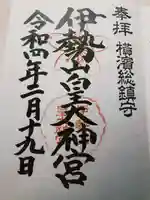 奉拝 横濱総鎮守
伊勢山皇大神宮
令和四年二月十九日